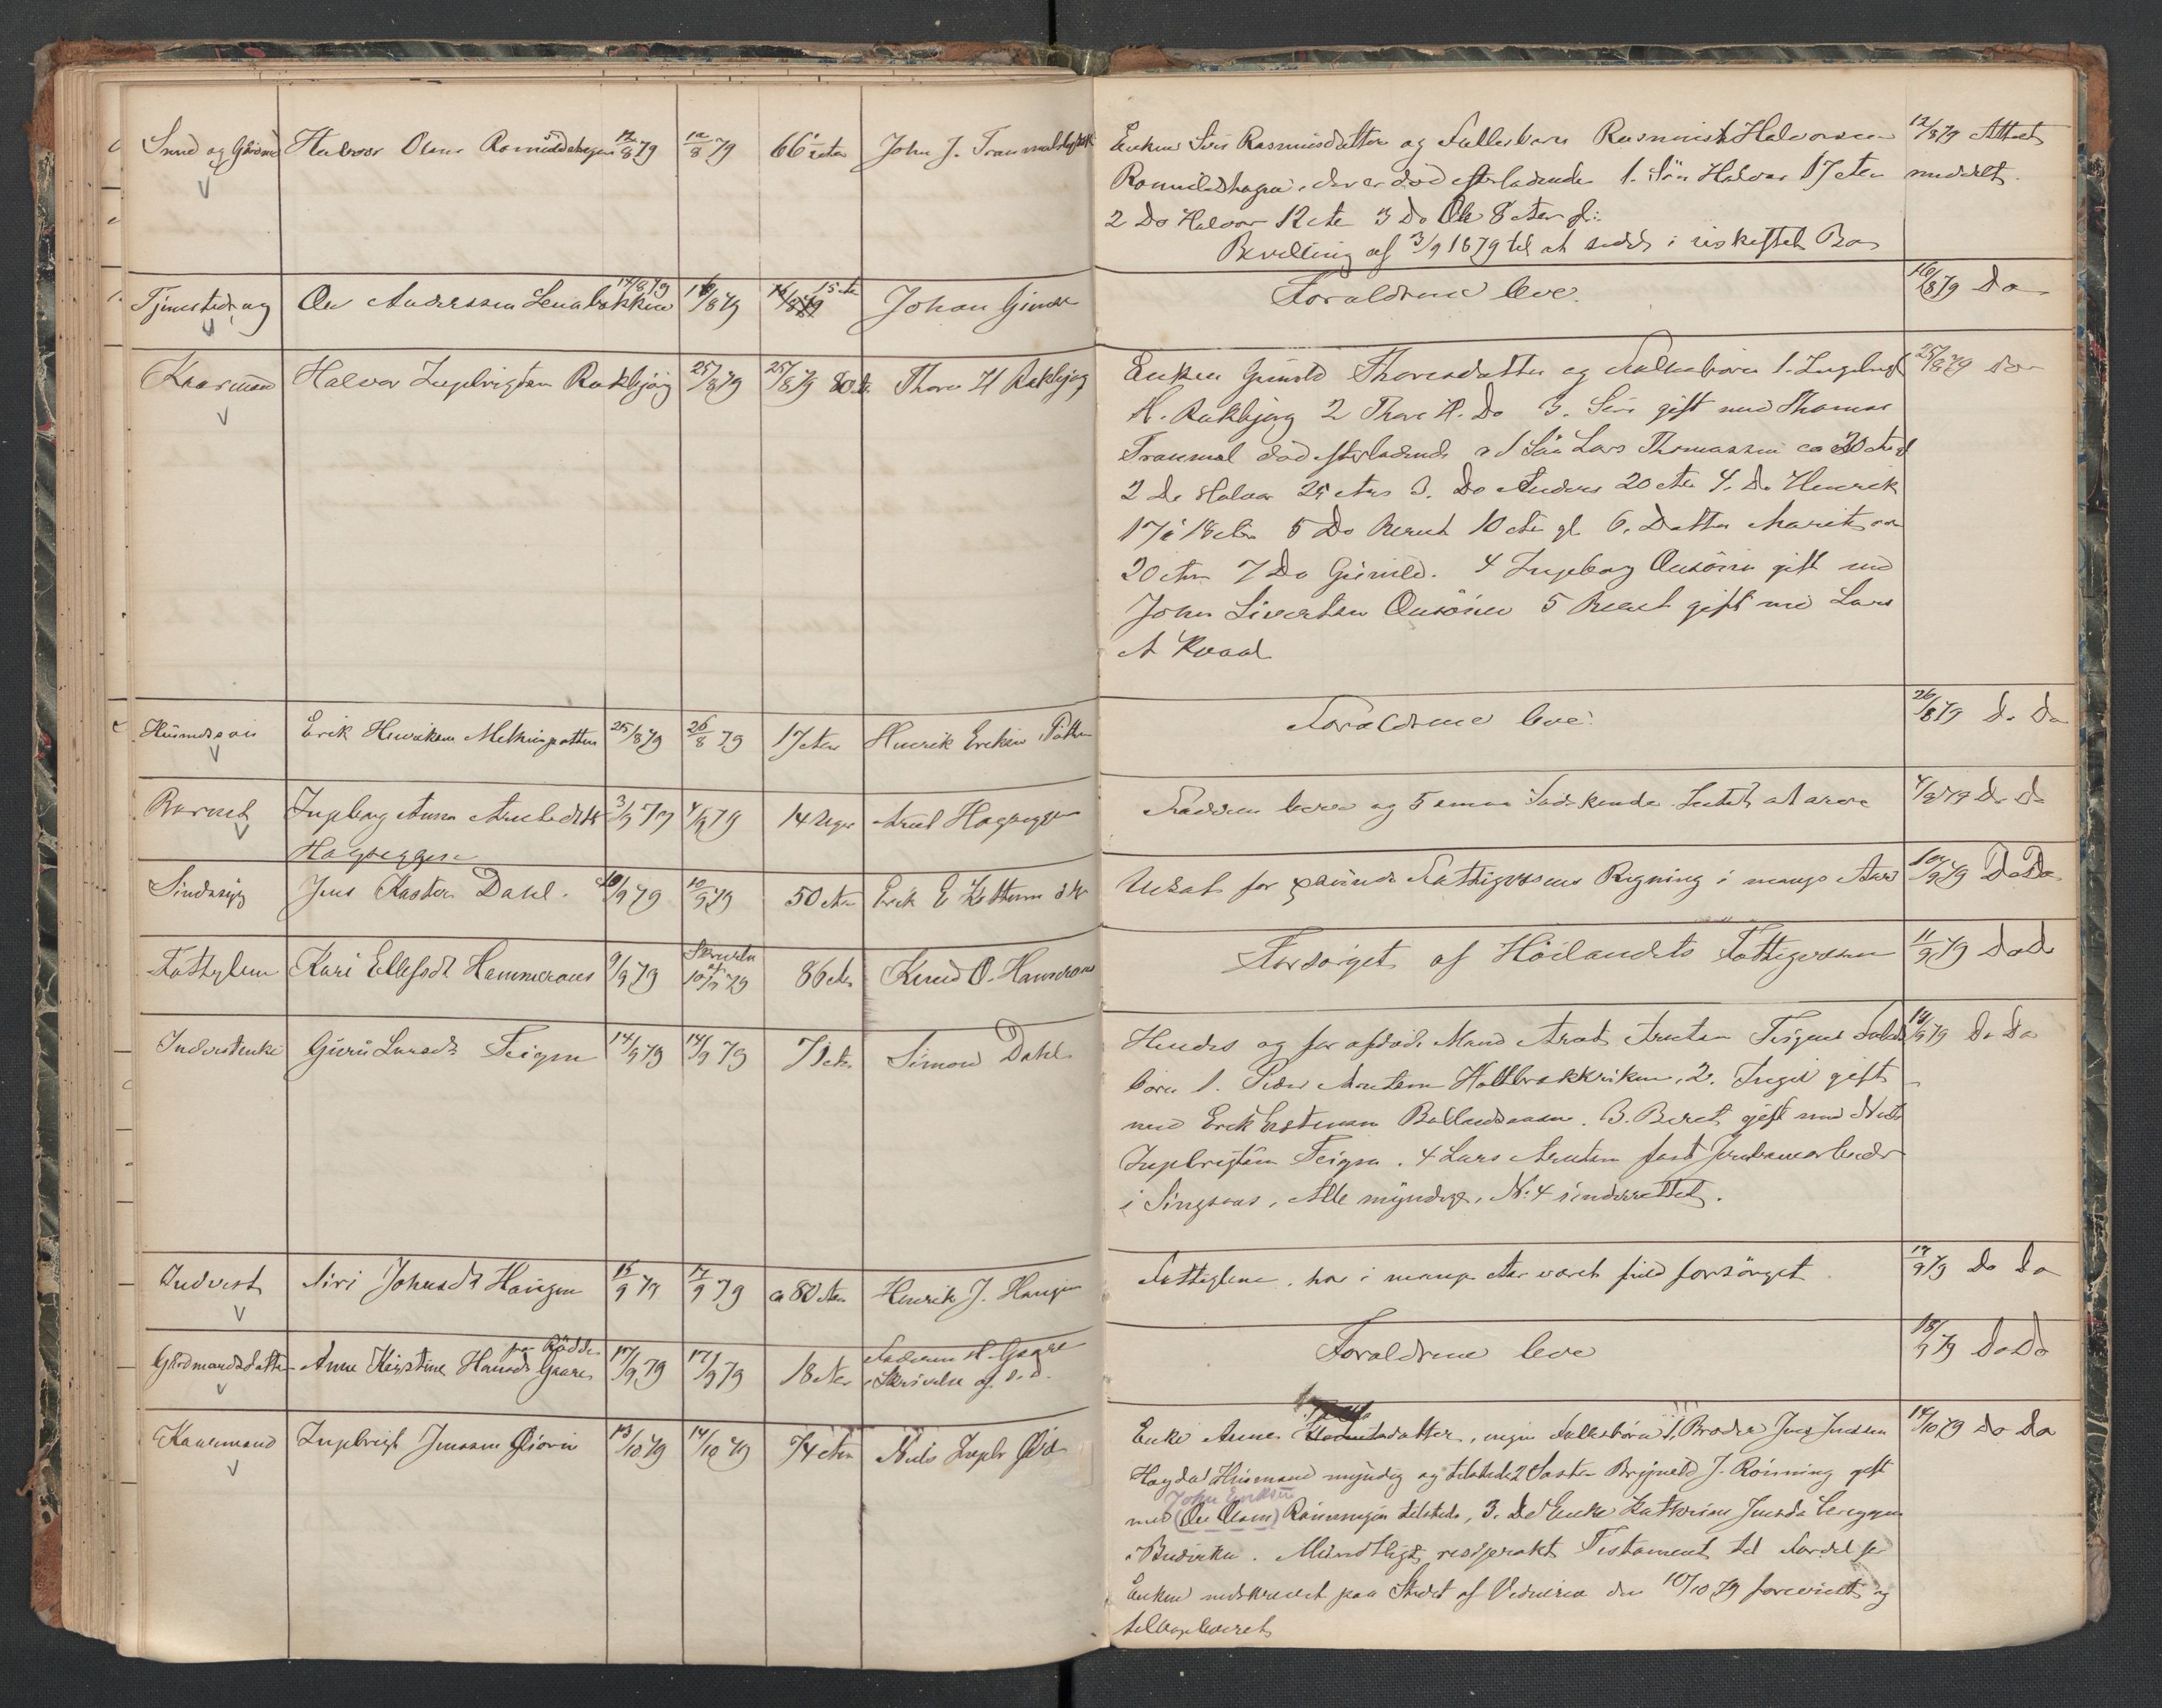 Smed og Gårdmd Halvor Olsen Romuldshagen 12/8 79 12/8 79 66 1/2 Aar John J. Tranmæl
Enken Siri Rasmusdatter og Fællesbarn Rasmus Halvorsen 12/8 79 Attest
Romuldshagen, der er död efterladende 1. Sön Halvor 17 Aar meddelt.
2 Do Halvor 12 Aar 3 Do Ole 8 Aar gl:
Bevilling af 3/9 1879 til at sidde i uskiftet Bo
Tjenestedreng Ole Anderssen Lenabakken 14/8 79 16/8 79 15 Aar Johan Gimse
Forældrene leve. 16/8 79 Do
Kaarmand Halvor Ingebrigtsen Rakbjörg 25/8 79 25/8 79 80 Aar Thore H Rakbjørg
Enken Gunild Thoresdatter og Fællesbörn 1. Ingebrigt 25/8 79 Do
H. Rakbjörg 2 Thore H. Do 3. Siri gift med Thomas
Tranmæl död efterladende 1 Sön Lars Thomassen ca 30 Aar
2 Do Halvor 25 Aar 3. Do Anders 20 Aar 4. Do Henrik
17 à 18 Aar 5 Do Berent 10 Aar gl 6. Datter Marit ca
20 Aar 7 Do Gunild. 4 Ingeborg Ousönen gift med
John Sivertsen Ousönen 5 Beret gift med Lars
A Kvaal
Husmdssön Erik Henriksen Melhuspotten 25/8 79 26/8 79 17 Aar Henrik Eriksen Potten
Forældrene leve. 26/8 79 Do Do
Barnet Ingeborg Anna Arntsdtr 3/9 79 4/9 79 14 Uger Arnt Hageggen
Hageggen
Faderen lever og 5 smaa Södskende. Intet at arve 4/9 79 Do Do
Sindssyg Jens Kastor Dahl. 10/9 79 10/9 79 50 Aar Erik E
Udsat for Fattigvæsenets Regning i mange Aar 10/9 79 Do Do
Fattiglem Kari Ellefsdt Hammeraas 9/9 79 Skrivelse af 10/9 79 86 Aar Knud O. Hammeraas
Forsörget af Höilandets Fattigvæsen 11/9 79 Do Do
Inderstenke Guru Larsdt Teigen 14/9 79 14/9 79 71 Aar Simon Dahl
Hendes og forafdöde Mand Arnt Arntsen Teigens Fælles 14/9 79 Do Do
börn 1. Peder Arntsen Holtbrakkriken, 2. Ingil gift
med Erik Estensen. 3. Beret gift med Nils
Ingebrigtsen Teigen. 4 Lars Arntsen fast Jernbanearbeider
i Singsaas, Alle myndige, No 4 underrettet.
Inderst Siri Johnsdt Haugen 15/9 79 17/9 79 ca 80 Aar Henrik J. Haugen
Fattiglem, har i mange Aar været fuld forsörget 17/9 79 Do Do
Gårdmandsdatter Anne Kirstine Hansdt Gaare paa Rödde 17/9 79 17/9 79 18 Aar Faderen H. Gaare
Skrivelse af s. d.
Forældrene leve 18/9 79 Do Do
Kaarmand Ingebrigt Jenssen Öien 13/10 79 14/10 79 74 Aar Nils Ingebr Öien
Enke Anne datter, ingen Fællesbörn 1. Broder Jens Jenssen 14/10 79 Do Do
Hagdal Husmand myndig og tilstede 2 Söster Brynild J. Rönning gift
John Eriksen
med (Ole Olsen) Rönningen tilstede, 3. Do Enke Kathrine Jensdt
i Budviken. Mundtligt resiprokt Testament til Fordel for
Enken nedskrevet paa Stedet af Vidnerne den 10/10 79 forevist og
tilbageleveret